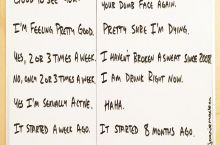 YOUR DUMB FACE AGAIN.
I'M FEELING PRETTY GOOD.
PRETTY SURE I'M DYING.
YES, 2 OR 3 TIMES A WEEK.
I HAVEN'T BROKEN A SWEAT SINCE 2008.
NO, ONLY 2 OR 3 TIMES A WEEK.
I AM DRUNK RIGHT NOW.
YES I'M SEXUALLY ACTIVE.
HAHA.
IT STARTED A WEEK AGO.
IT STARTED 8 MONTHS AGO.